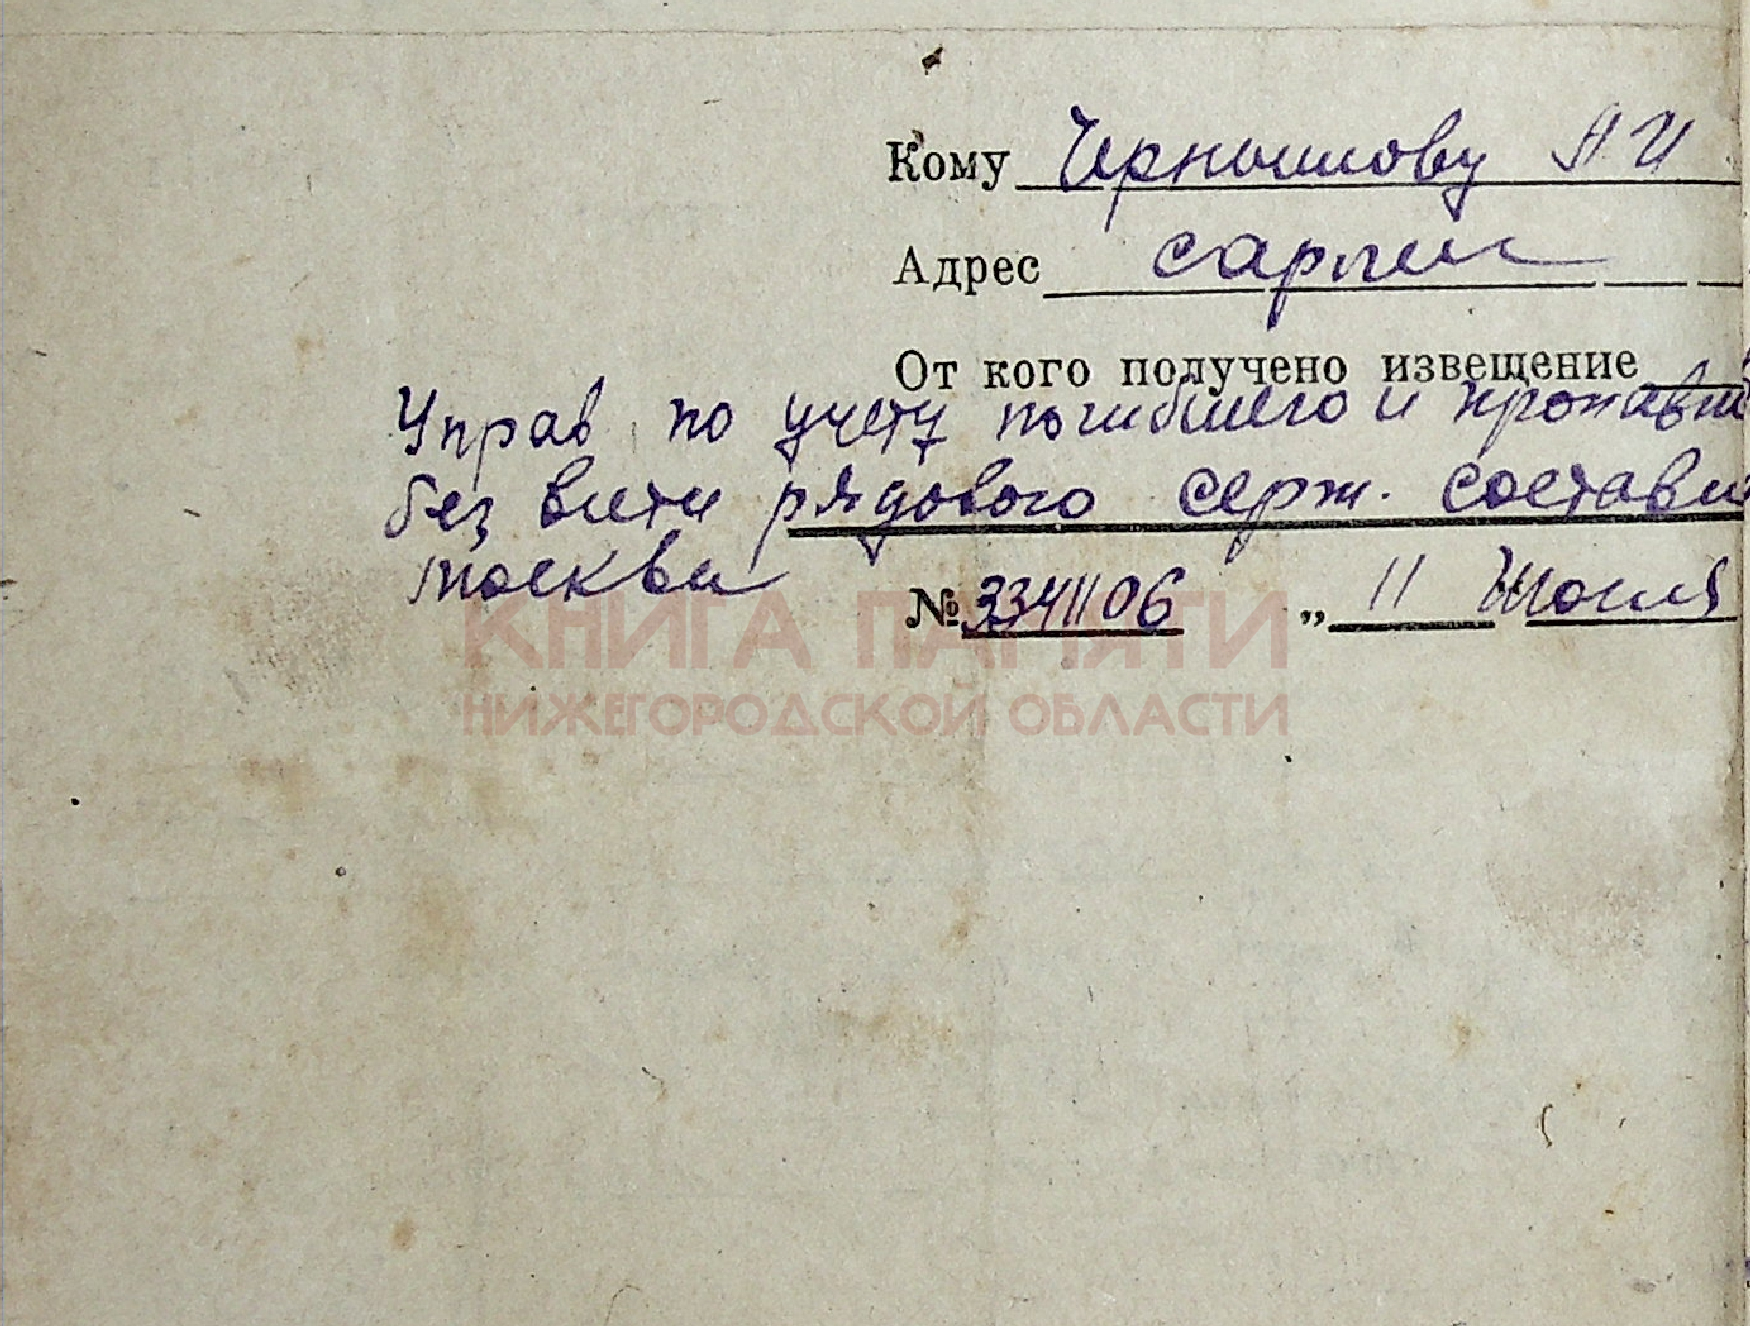 Кому Чернышову А И
Адрес Сарлей
От кого получено извещение
Управ по учету погибшего и пропавш
без вести рядового серж. состава
Москва
№ 3341106 „ 11 Июля
КНИГА ПАМЯТИ
НИЖЕГОРОДСКОЙ ОБЛАСТИ